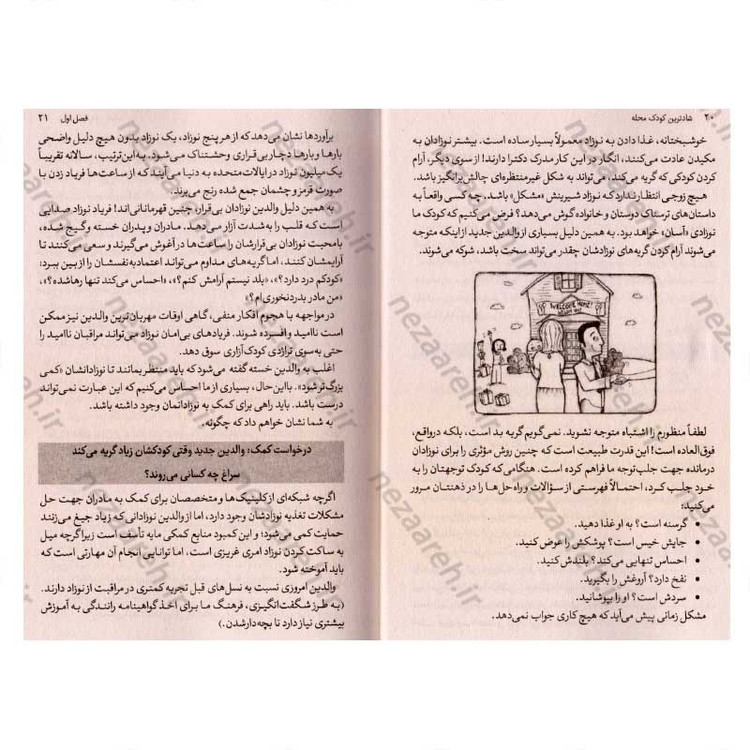 ۲۰ شادترین کودک محله
خوشبختانه، غذا دادن به نوزاد معمولاً بسیار ساده است. بیشتر نوزادان به
مکیدن عادت می‌کنند، انگار در این کار مدرک دکترا دارند! از سوی دیگر، آرام
کردن کودکی که گریه می‌کند، می‌تواند به شکل غیرمنتظره‌ای چالش‌برانگیز باشد.
هیچ زوجی انتظار ندارد که نوزاد شیرینش «مشکل» باشد. چه کسی واقعاً به
داستان‌های ترسناک دوستان و خانواده گوش می‌دهد؟ فرض می‌کنیم که کودک ما
نوزادی «آسان» خواهد بود. به همین دلیل بسیاری از والدین جدید از اینکه متوجه
می‌شوند آرام کردن گریه‌های نوزادشان چقدر می‌تواند سخت باشد، شوکه می‌شوند.
WELCOME HOME!
لطفاً منظورم را اشتباه متوجه نشوید. نمی‌گویم گریه بد است، بلکه درواقع،
فوق‌العاده است! این قدرت طبیعت است که چنین روش مؤثری را برای نوزادان
درمانده جهت جلب‌توجه ما فراهم کرده است. هنگامی‌که کودک توجهتان را به
خود جلب کرد، احتمالاً فهرستی از سؤالات و راه‌حل‌ها را در ذهنتان مرور
می‌کنید:
• گرسنه است؟ به او غذا دهید.
• جایش خیس است؟ پوشکش را عوض کنید.
• احساس تنهایی می‌کند؟ بلندش کنید.
• نفخ دارد؟ آروغش را بگیرید.
• سردش است؟ او را بپوشانید.
مشکل زمانی پیش می‌آید که هیچ کاری جواب نمی‌دهد.
فصل اول ۲۱
برآوردها نشان می‌دهد که از هر پنج نوزاد، یک نوزاد بدون هیچ دلیل واضحی
بارها و بارها دچار بی‌قراری وحشتناک می‌شود. به این‌ترتیب، سالانه تقریباً
یک میلیون نوزاد در ایالات‌متحده به دنیا می‌آیند که از ساعت‌ها فریاد زدن با
صورت قرمز و چشمان جمع شده رنج می‌برند.
به همین دلیل والدین نوزادان بی‌قرار، چنین قهرمانانی‌اند! فریاد نوزاد صدایی
است که قلب را به‌شدت آزار می‌دهد. مادران و پدران خسته و گیج شده،
بامحبت نوزادان بی‌قرارشان را ساعت‌ها در آغوش می‌گیرند و سعی می‌کنند تا
آرایمشان کنند، اما گریه‌های مداوم می‌تواند اعتمادبه‌نفسشان را از بین ببرد:
«کودکم درد دارد؟»، «بلد نیستم آرامش کنم؟»، «احساس می‌کند تنها رها شده؟»،
«من مادر بدردنخوری‌ام؟»
در مواجهه با هجوم افکار منفی، گاهی اوقات مهربان‌ترین والدین نیز ممکن
است ناامید و افسرده شوند. فریادهای بی‌امان نوزاد می‌تواند مراقبان ناامید را
حتی به‌سوی تراژدی کودک‌آزاری سوق دهد.
اغلب به والدین خسته گفته می‌شود که باید منتظر بمانند تا نوزادانشان «کمی
بزرگ‌تر شود». بااین‌حال، بسیاری از ما احساس می‌کنیم که این عبارت نمی‌تواند
درست باشد. باید راهی برای کمک به نوزادانمان وجود داشته باشد.
به شما نشان خواهم داد که چگونه.
درخواست کمک: والدین جدید وقتی کودکشان زیاد گریه می‌کند
سراغ چه کسانی می‌روند؟
اگرچه شبکه‌ای از کلینیک‌ها و متخصصان برای کمک به مادران جهت حل
مشکلات تغذیه نوزادشان وجود دارد، اما از والدین نوزادانی که زیاد جیغ می‌زنند
حمایت کمی می‌شود؛ و این کمبود منابع کمکی مایه تأسف است زیرا گرچه میل
به ساکت کردن نوزاد امری غریزی است، اما توانایی انجام آن مهارتی است که
باید آموخته شود.
والدین امروزی نسبت به نسل‌های قبل تجربه کمتری در مراقبت از نوزاد دارند.
(به طرز شگفت‌انگیزی، فرهنگ ما برای اخذ گواهینامه رانندگی به آموزش
بیشتری نیاز دارد تا بچه‌دارشدن.)
nezaareh.ir